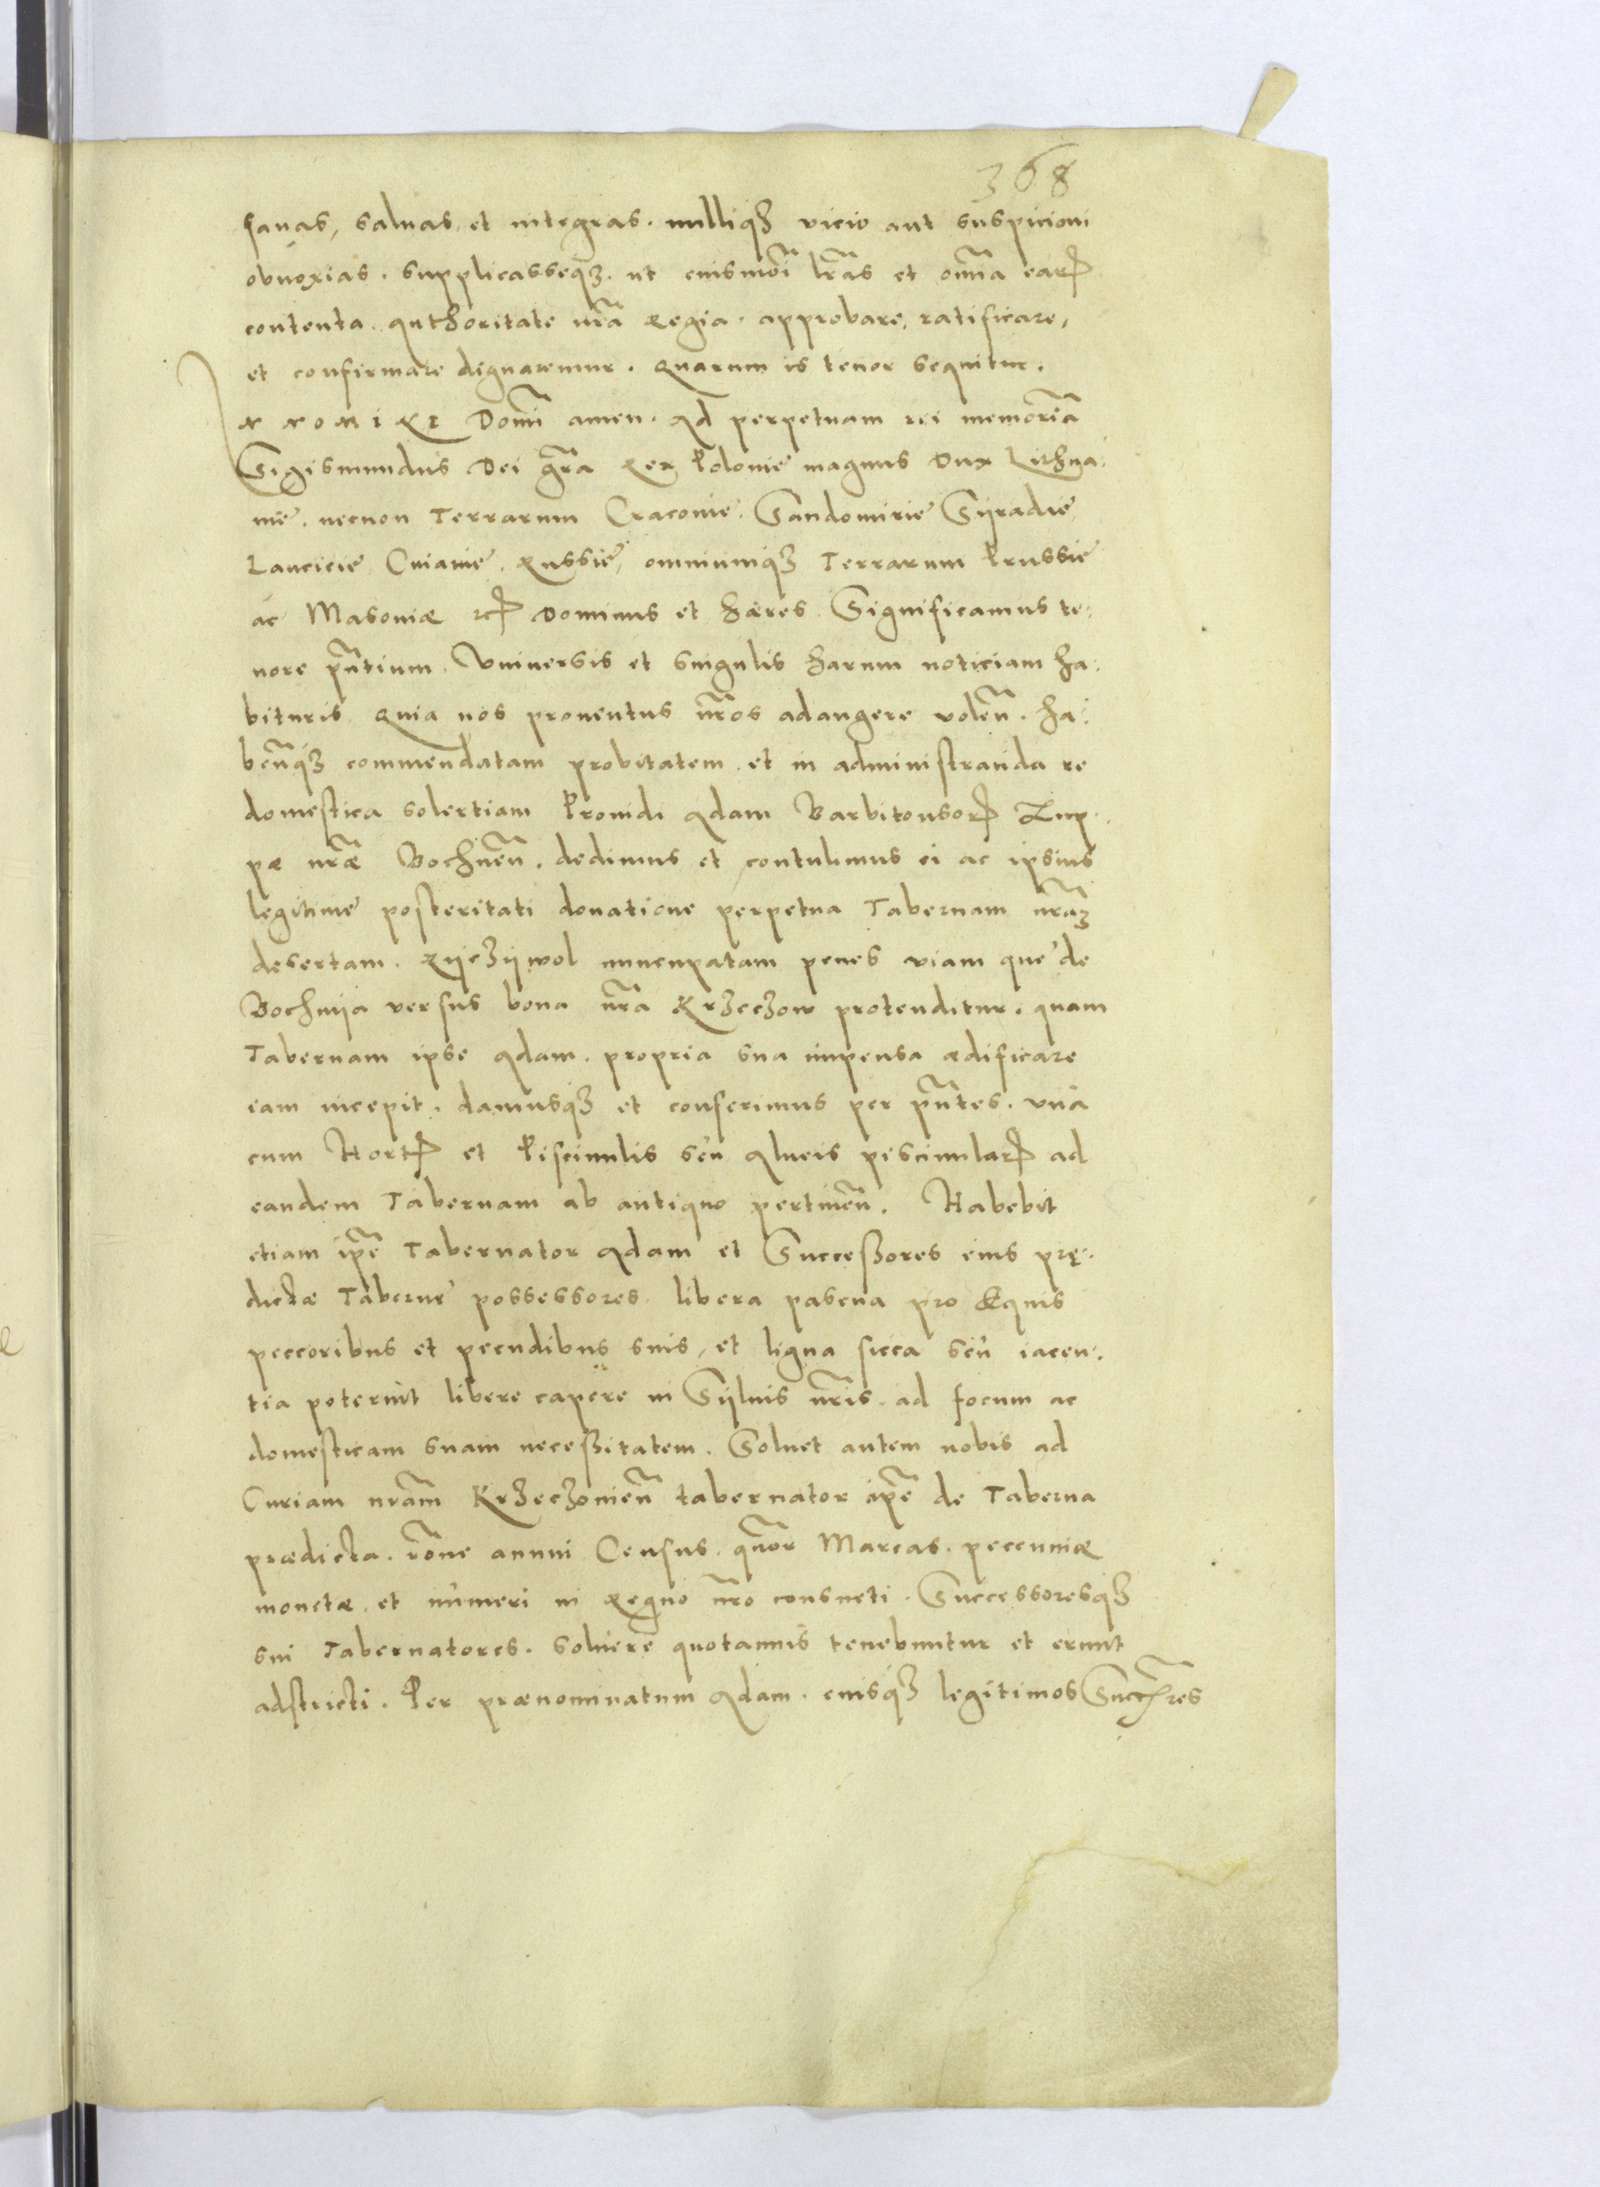 368
sanas, saluas, et integras. nulliqȝ vicio aut suspicioni
obnoxias. supplicasseqȝ. ut eiusmoi lras et omia earꝝ
contenta. authoritate nra Regia. approbare, ratificare,
et confirmare dignaremur. Quarum is tenor sequitur.
IN NOMINE Domi amen. Ad perpetuam rei memoria
Sigismundus Dei gra Rex Poloniae magnus Dux Lithua:
niae. necnon Terrarum Cracoviae. Sandomirie Syradie
Lancicie Cuiavie. Russie, omniumqȝ Terrarum Prussie
ac Masoviæ etc Dominus et hæres. Significamus te:
nore pntium. Vniuersis et singulis harum noticiam ha:
bituris. Quia nos proventus nros adaugere volen. ha:
benqȝ commendatam probitatem. et in administranda re
domestica solertiam Providi Adam Barbitonsorꝝ Zup:
pæ nræ Bochnen. dedimus et contulimus ei ac ipsius
legitime posteritati donatione perpetua Tabernam nram
desertam. Ryczywol nuncupatam penes viam que de
Bochnya versus bona nra Krzeczow protenditur. quam
Tabernam ipse Adam. propria sua impensa ædificare
eam incepit. damusqȝ et conferimus per pntes. vna
cum Hortꝝ et Piscinulis seu Alueis piscinularꝝ ad
eandem Tabernam ab antiquo pertinen. Habebit
etiam ipe Tabernator Adam et Successores eius prę:
dictæ Taberne possessores. libera pascua pro Equis
peccoribus et pecudibus suis, et ligna sicca seu iacen:
tia poterint libere capere in Syluis nris. ad focum ac
domesticam suam necessitatem. Soluet autem nobis ad
Curiam nram Krzeczovien tabernator ipe de Taberna
prædicta. rone annui Census. quor Marcas. peccuniæ
monetæ. et numeri in Regno nro consueti. Successoresqȝ
sui Tabernatores. soluere quotannis tenebuntur et erunt
adstricti. Per prænominatum Adam. eiusqȝ legitimos Succres